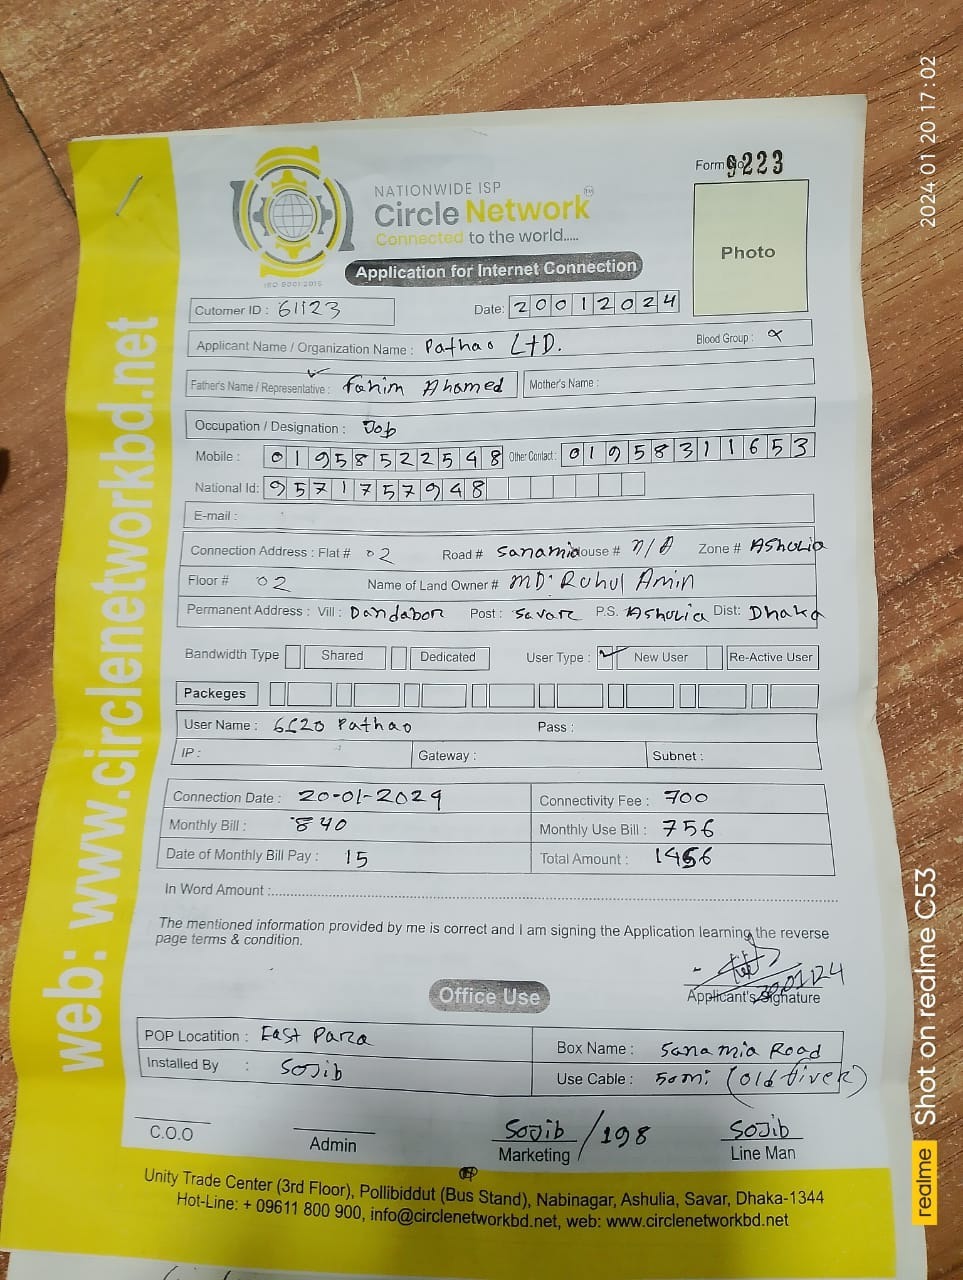 Form No 9223
NATIONWIDE ISP
Circle Network TM
Connected to the world.....
ISO 9001:2015
Photo
Application for Internet Connection
Cutomer ID : 61123 Date: 20012024
Applicant Name / Organization Name : Pathao LTD. Blood Group :
Father's Name / Representative : Fahim Ahamed Mother's Name :
Occupation / Designation : Job
Mobile : 01958522548 Other Contact : 01958311653
National Id: 9571757948
E-mail :
Connection Address : Flat # 02 Road # Sanamia House # N/A Zone # AShulia
Floor # 02 Name of Land Owner # MD. Rohul Amin
Permanent Address : Vill : Dandabor Post : Savar P.S. AShulia Dist: Dhaka
Bandwidth Type Shared Dedicated User Type : New User Re-Active User
Packeges
User Name : Pathao Pass :
IP : Gateway : Subnet :
Connection Date : 20-01-2024 Connectivity Fee : 700
Monthly Bill : 840 Monthly Use Bill : 756
Date of Monthly Bill Pay : 15 Total Amount : 1456
In Word Amount :
The mentioned information provided by me is correct and I am signing the Application learning the reverse
page terms & condition.
Applicant's Signature
Office Use
POP Locatition : East Para Box Name : Sanamia Road
Installed By : Sojib Use Cable : 50mi (old fiver)
C.O.O Admin Sojib / 198 Sojib
Marketing Line Man
Unity Trade Center (3rd Floor), Pollibiddut (Bus Stand), Nabinagar, Ashulia, Savar, Dhaka-1344
Hot-Line: + 09611 800 900, info@circlenetworkbd.net, web: www.circlenetworkbd.net
web: www.circlenetworkbd.net
2024 01 20 17:02
realme Shot on realme C53